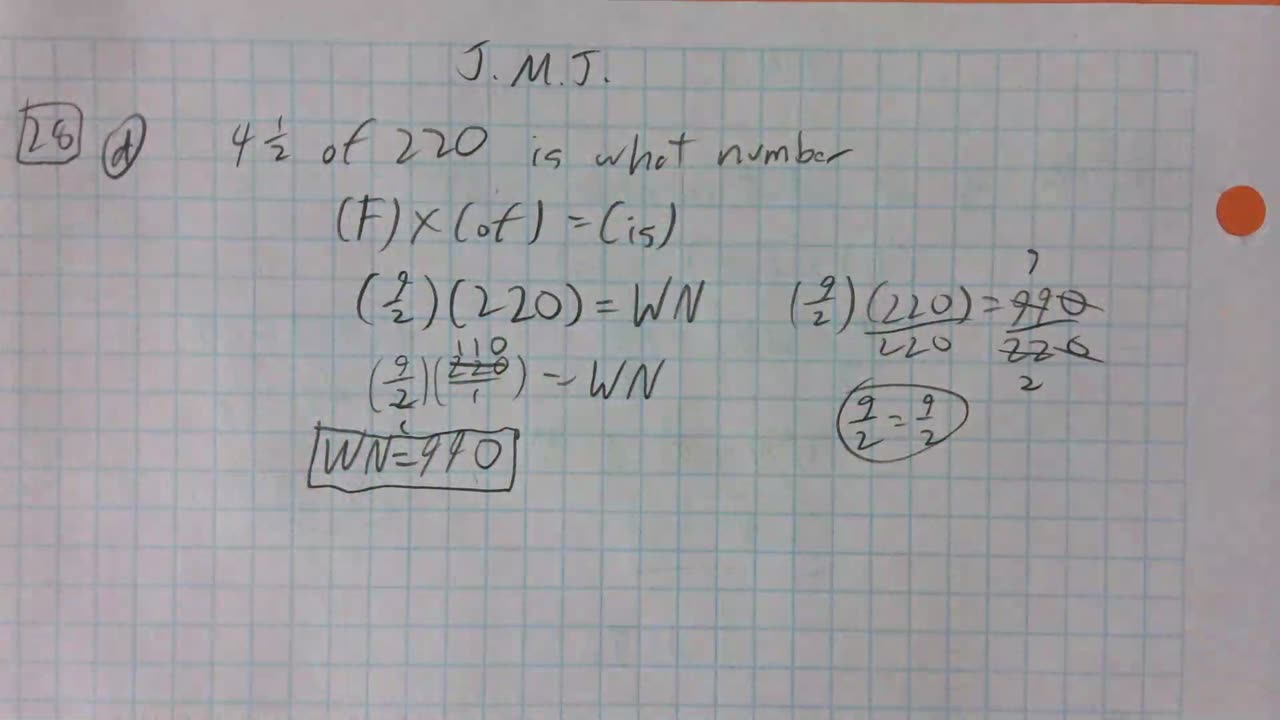 J.M.J.
28 d 4 1/2 of 220 is what number
(F) × (of) = (is)
(9/2)(220) = WN
(9/2)(220/1) = WN
110
WN = 990
(9/2)(220)/220 = 990/220
2
9/2 = 9/2